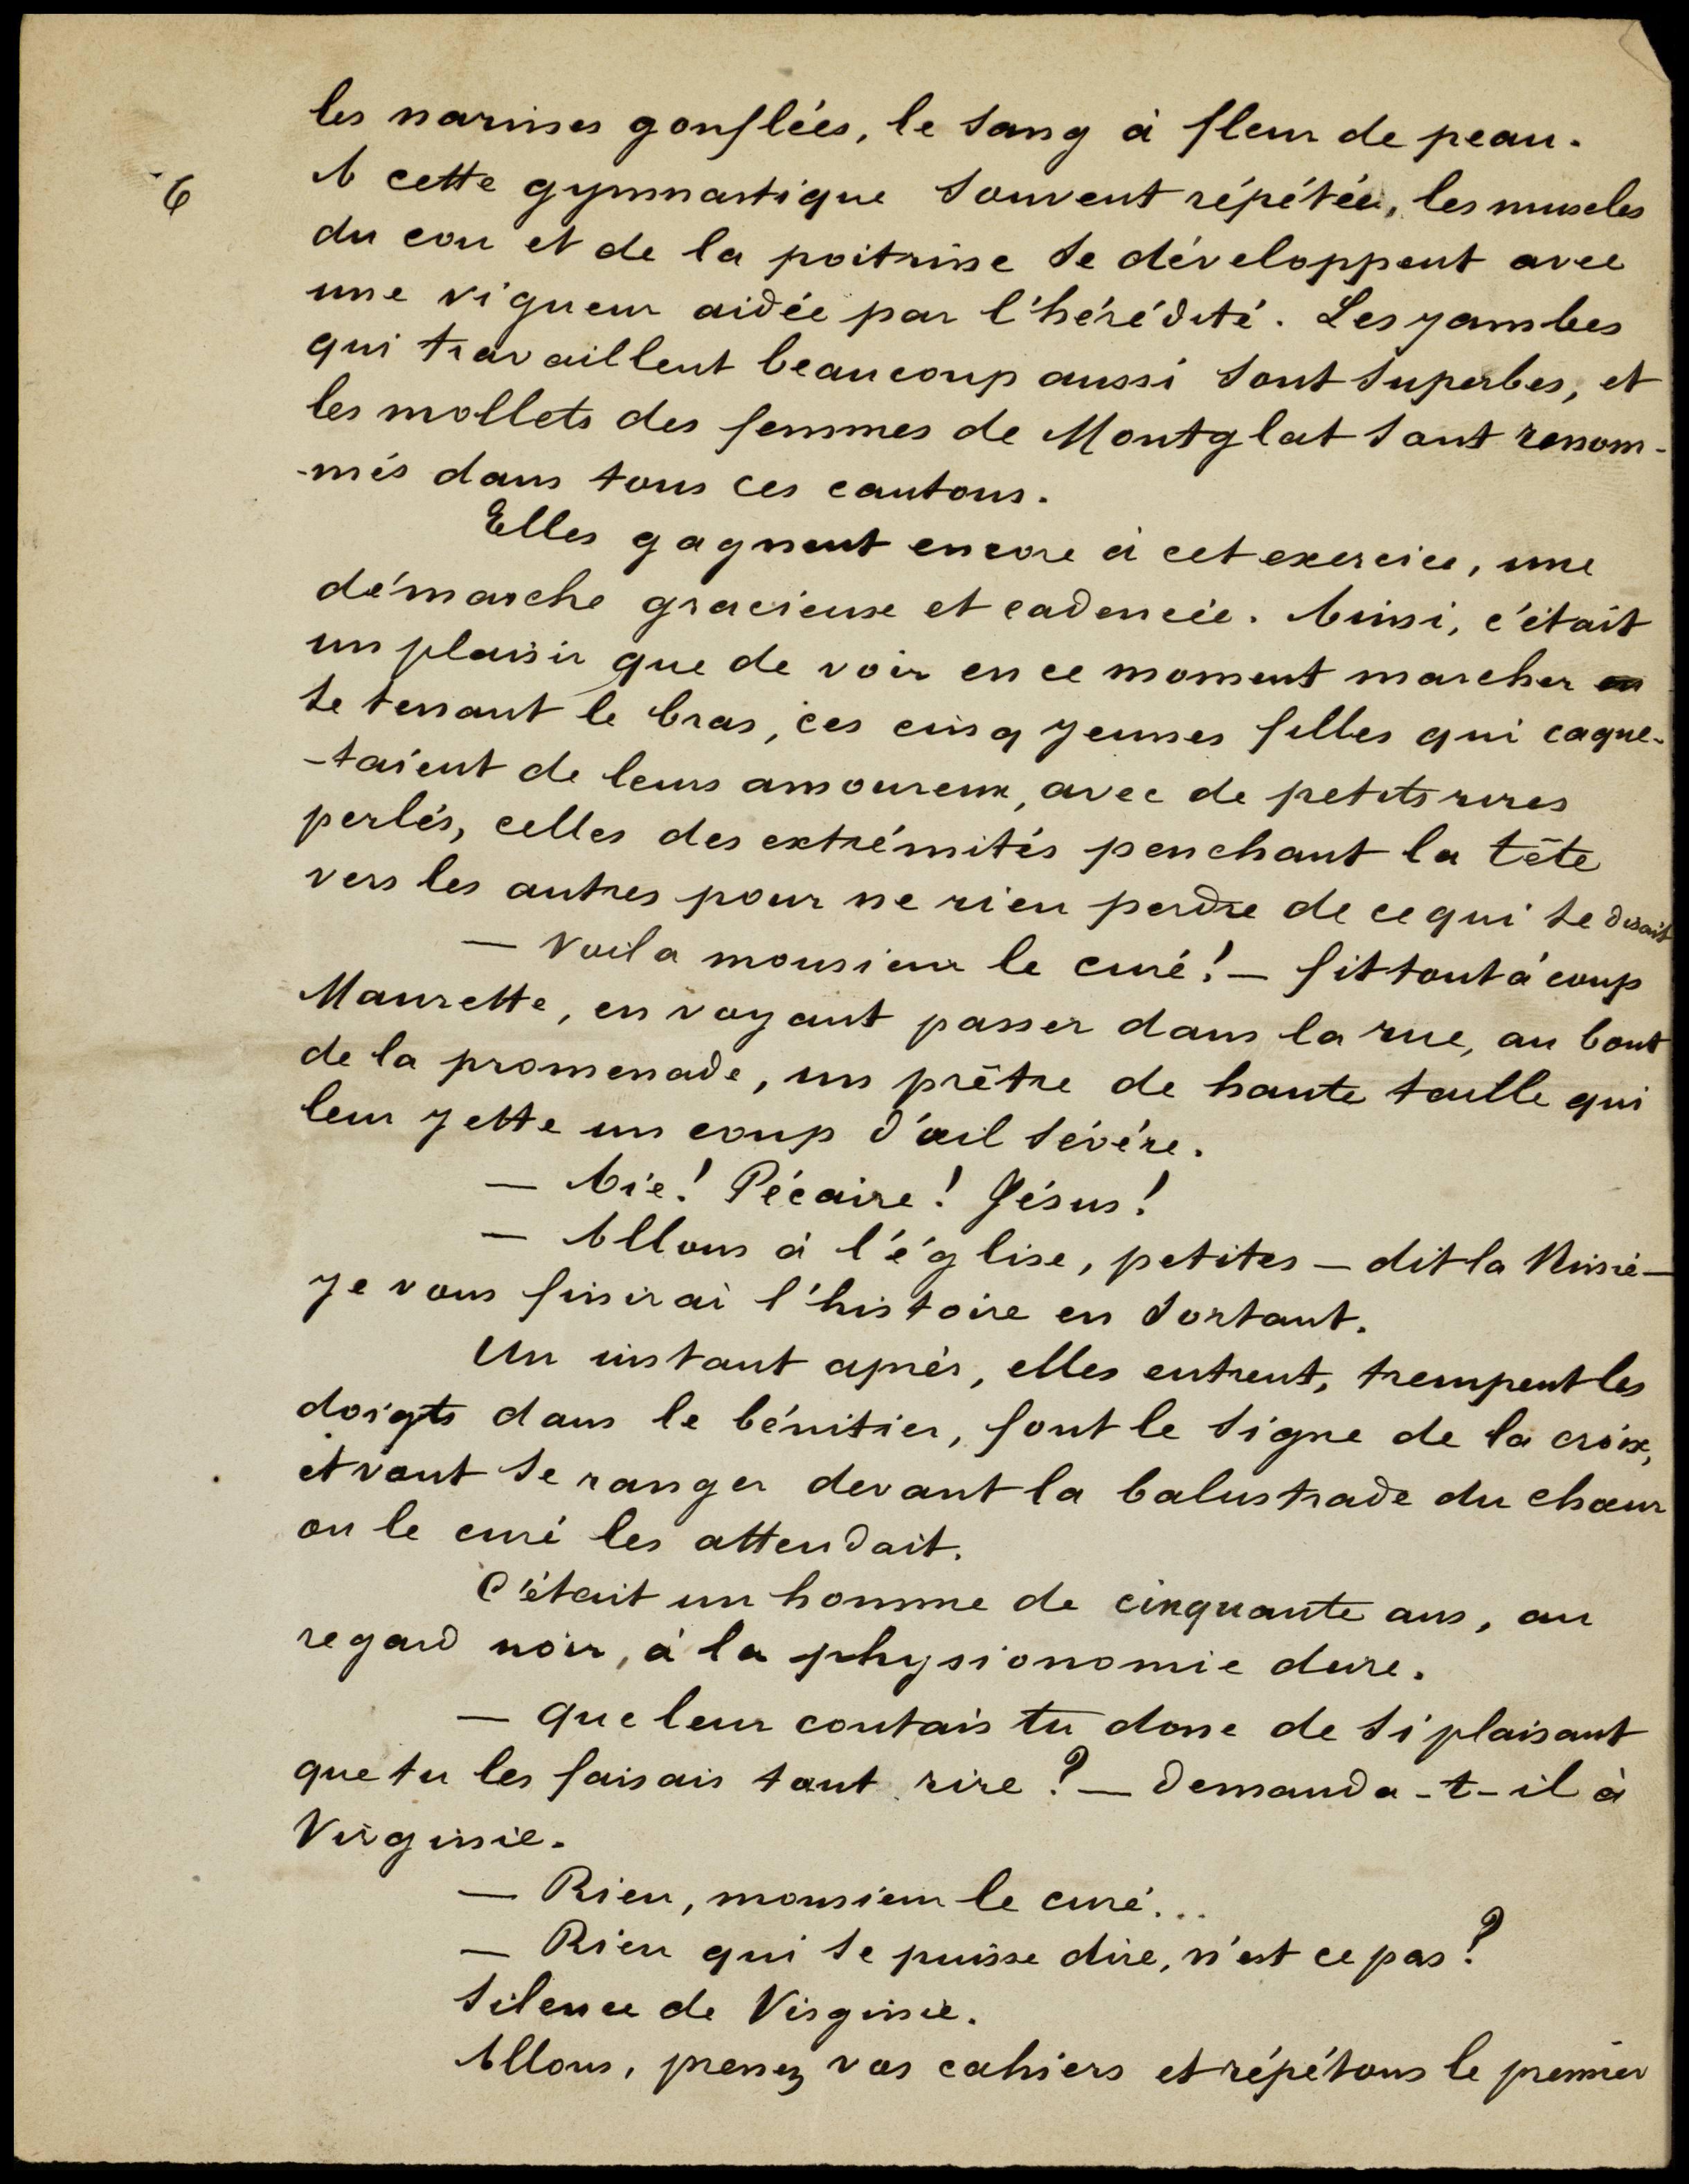 les narines gonflées, le sang à fleur de peau.
6
A cette gymnastique souvent répétée, les muscles
du cou et de la poitrine se développent avec
une vigueur aidée par l'hérédité. Les jambes
qui travaillent beaucoup aussi sont superbes, et
les mollets des femmes de Montglat sont renom-
-més dans tous ces cantons.
Elles gagnent encore à cet exercice, une
démarche gracieuse et cadencée. Ainsi, c'était
un plaisir que de voir en ce moment marcher en
se tenant le bras, ces cinq jeunes filles qui caque-
-taient de leurs amoureux, avec de petits rires
perlés, celles des extrémités penchant la tête
vers les autres pour ne rien perdre de ce qui se disait
— Voila monsieur le curé! — fit tout à coup
Maurette, en voyant passer dans la rue, au bout
de la promenade, un prêtre de haute taille qui
leur jette un coup d'œil sévére.
— Aie! Pécaire! Jésus!
— Allons à l'église, petites — dit la Ninie —
je vous finirai l'histoire en sortant.
Un instant après, elles entrent, trempent les
doigts dans le bénitier, font le signe de la croix,
et vont se ranger devant la balustrade du chœur
ou le curé les attendait.
C'était un homme de cinquante ans, au
regard noir, à la physionomie dure.
— Que leur contais tu donc de si plaisant
que tu les faisais tant rire? — demanda-t-il à
Virginie.
— Rien, monsieur le curé...
— Rien qui se puisse dire, n'est ce pas?
Silence de Virginie.
Allons, prenez vos cahiers et répétons le premier